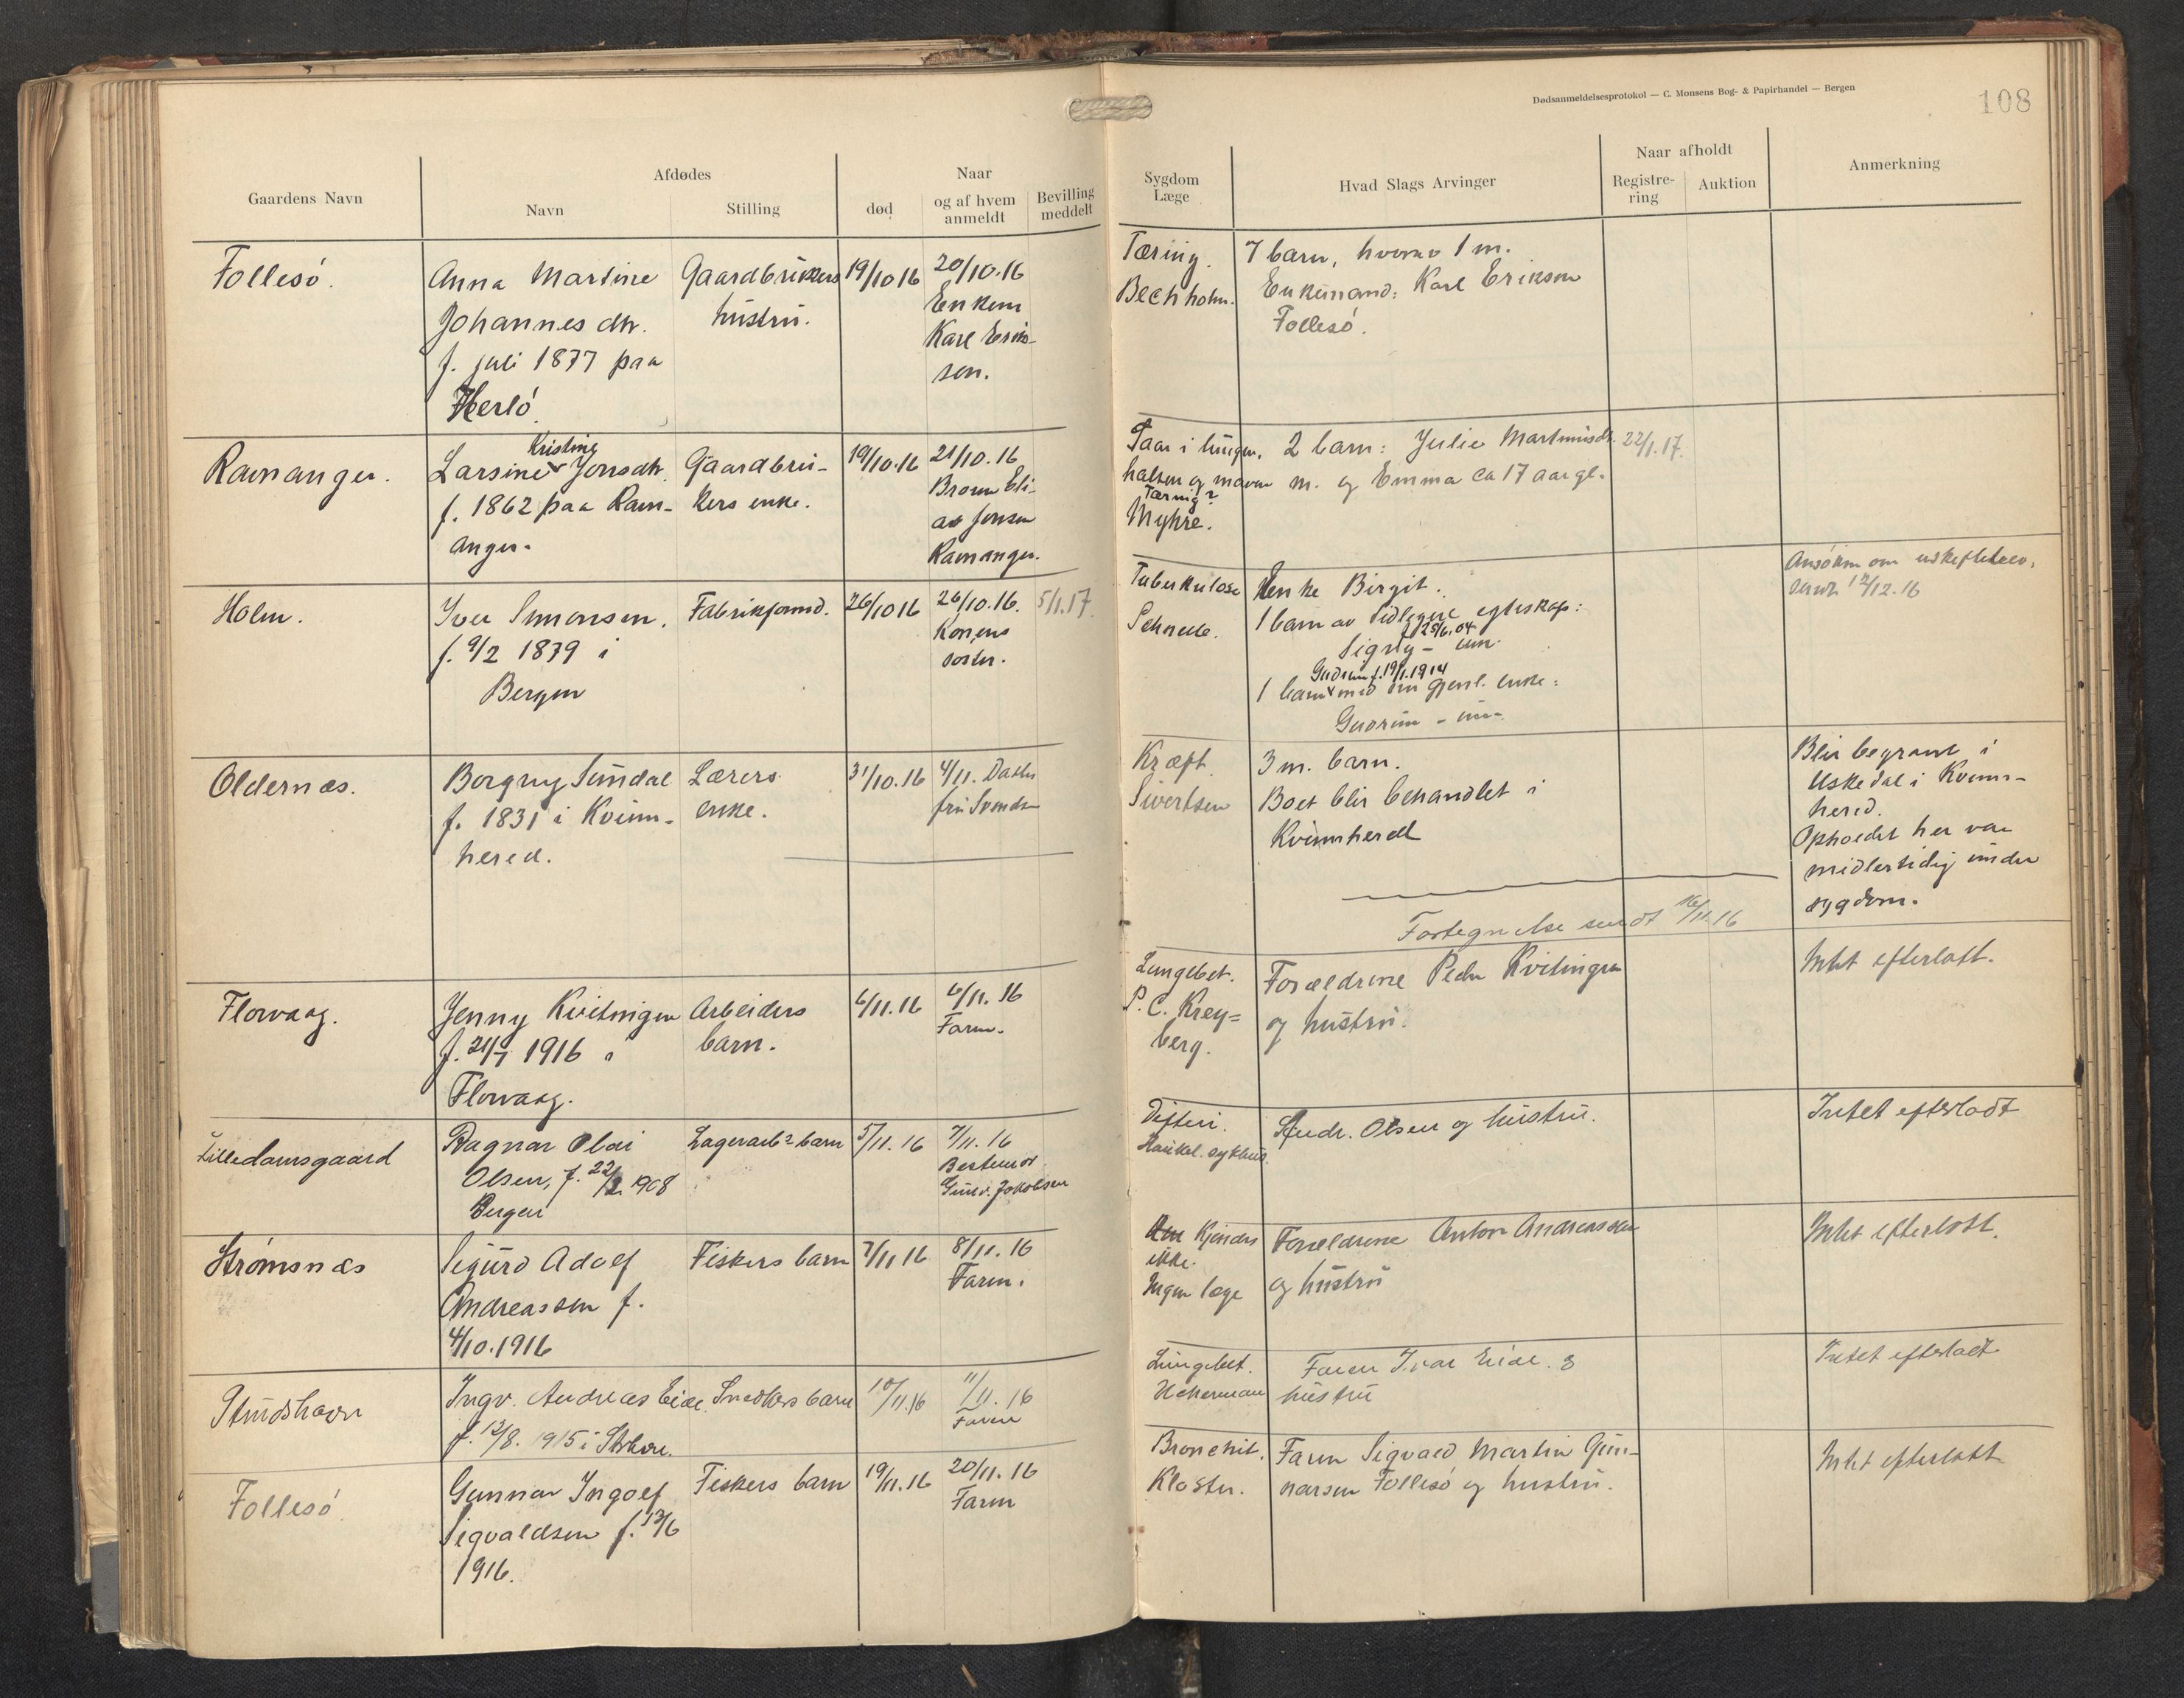 Dødsanmeldelsesprotokol — C. Monsens Bog- & Papirhandel — Bergen
108
Gaardens Navn
Afdødes
Navn
Stilling
død
Naar
og af hvem
anmeldt
Bevilling
meddelt
Sygdom
Læge
Hvad Slags Arvinger
Naar afholdt
Registre-
ring
Auktion
Anmerkning
Follesö.
Anna Martine
Johannesdtr.
f. juli 1877 paa
Herlö.
Gaardbrukers
hustru.
19/10 16
20/10.16
Enkem
Karl Erik-
sen.
Tæring.
Bechholm.
7 barn, hvorav 1 m.
Enkemand: Karl Eriksen
Follesö.
Ramanger.
Kristine
Larsine Jonsdtr.
f. 1862 paa Ram-
anger.
Gaardbru-
kers enke.
19/10.16
21/10.16
Broren Eli-
as Jonsen
Ramanger.
Saar i lungen,
halsen og maven
Tæring?
Myhre.
2 barn: Julie Martinusdtr.
m. og Emma ca 17 aar gl.
22/1.17.
Holm.
Iver Simonsen.
f. 9/2 1879 i
Bergen
Fabrikformd.
26/10 16
26/10.16.
Konens
söster.
5/1.17.
Tuberkulose
Schnelle.
Enke Birgit.
1 barn av tidligere egteskap:
f 28/6.04
Signy – um.
Gudrun f. 19/1.1914
1 barn med sin gjenl. enke:
Gudrun – um.
Ansökn om uskiftebev.
sendt 12/12.16
Oldernæs.
Borgny Sundal
f. 1831 i Kvinn-
hered.
Lærers
enke.
31/10.16
4/11. Datter
fru Svendsen
Kræft.
Sivertsen
3 m. barn.
Boet blir behandlet i
Kvinnhered
Blir begravet i
Uskedal i Kvinn-
hered.
Opholdet her var
midlertidig under
sygdom.
Fortegnelse sendt 16/11.16
Florvaag.
Jenny Kvitingen
f. 21/7 1916 i
Florvaag.
Arbeiders
barn.
6/11.16
6/11.16
Faren.
Lungebet.
P. C. Krey=
berg.
Forældrene Peder Kvitingen
og hustru.
Intet efterlatt.
Lilledamsgaard
Ragnar Olai
Olsen, f. 22/2 1908
Bergen
Lagerarb.s barn
5/11.16
7/11.16
Bestemor
Jakobsen
Difteri.
Haukel. sykhus.
Andr. Olsen og hustru.
Intet efterladt
Strömsnæs
Sigurd Adolf
Andreassen f.
4/10.1916
Fiskers barn
7/11 16
8/11.16
Faren.
Kjendes
ikke.
Ingen læge
Forældrene Anton Andreassen
og hustru
Intet efterlatt.
Strudshavn
Ingv. Andreas Eide
f. 12/8. 1915 i
Snedkers barn
10/11.16
11/11.16
Faren
Lungebet.
Faren Ivar Eide. &
hustru
Intet efterladt
Follesö
Gunnar Ingolf
Sigvaldsen f. 13/6
1916.
Fiskers barn
19/11.16
20/11.16
Faren
Bronchit.
Kloster.
Faren Sigvald Martin Gun-
narsen Follesö og hustru.
Intet efterlatt